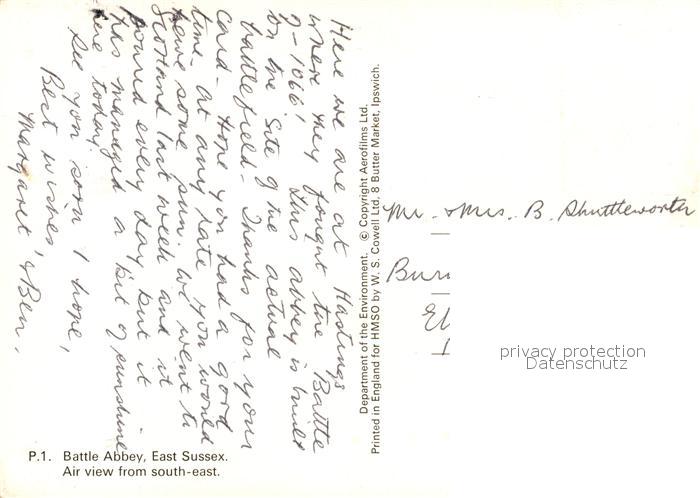 Here we are at Hastings
where they fought the Battle
of 1066! This abbey is built
on the site of the actual
battlefield. Thanks for your
card - hope you had a good
time. At any rate you would
have some sun. We went to
Scotland last week and it
poured every day but it
has managed a bit of sunshine
here today.
See you soon I hope,
Best wishes,
Margaret & Ben.
Department of the Environment. © Copyright Aerofilms Ltd.
Printed in England for HMSO by W. S. Cowell Ltd, 8 Butter Market, Ipswich.
Mr. & Mrs. B. Shuttleworth
privacy protection
Datenschutz
P.1. Battle Abbey, East Sussex.
Air view from south-east.